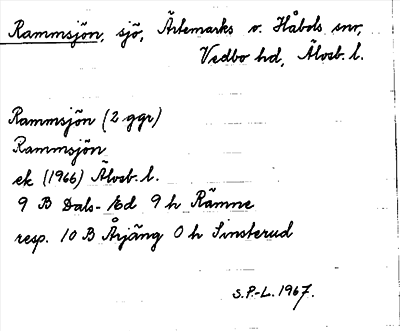 Rammsjön, sjö, Ärtemarks o. Håbols snr,
Vedbo hd, Älvsb. l.
Rammsjön (2 ggr)
Rammsjön
ek (1966) Älvsb. l.
9 B Dals-Ed 9 h Rämne
resp. 10 B Årjäng 0 h Sinsterud
S.P.-L. 1967.